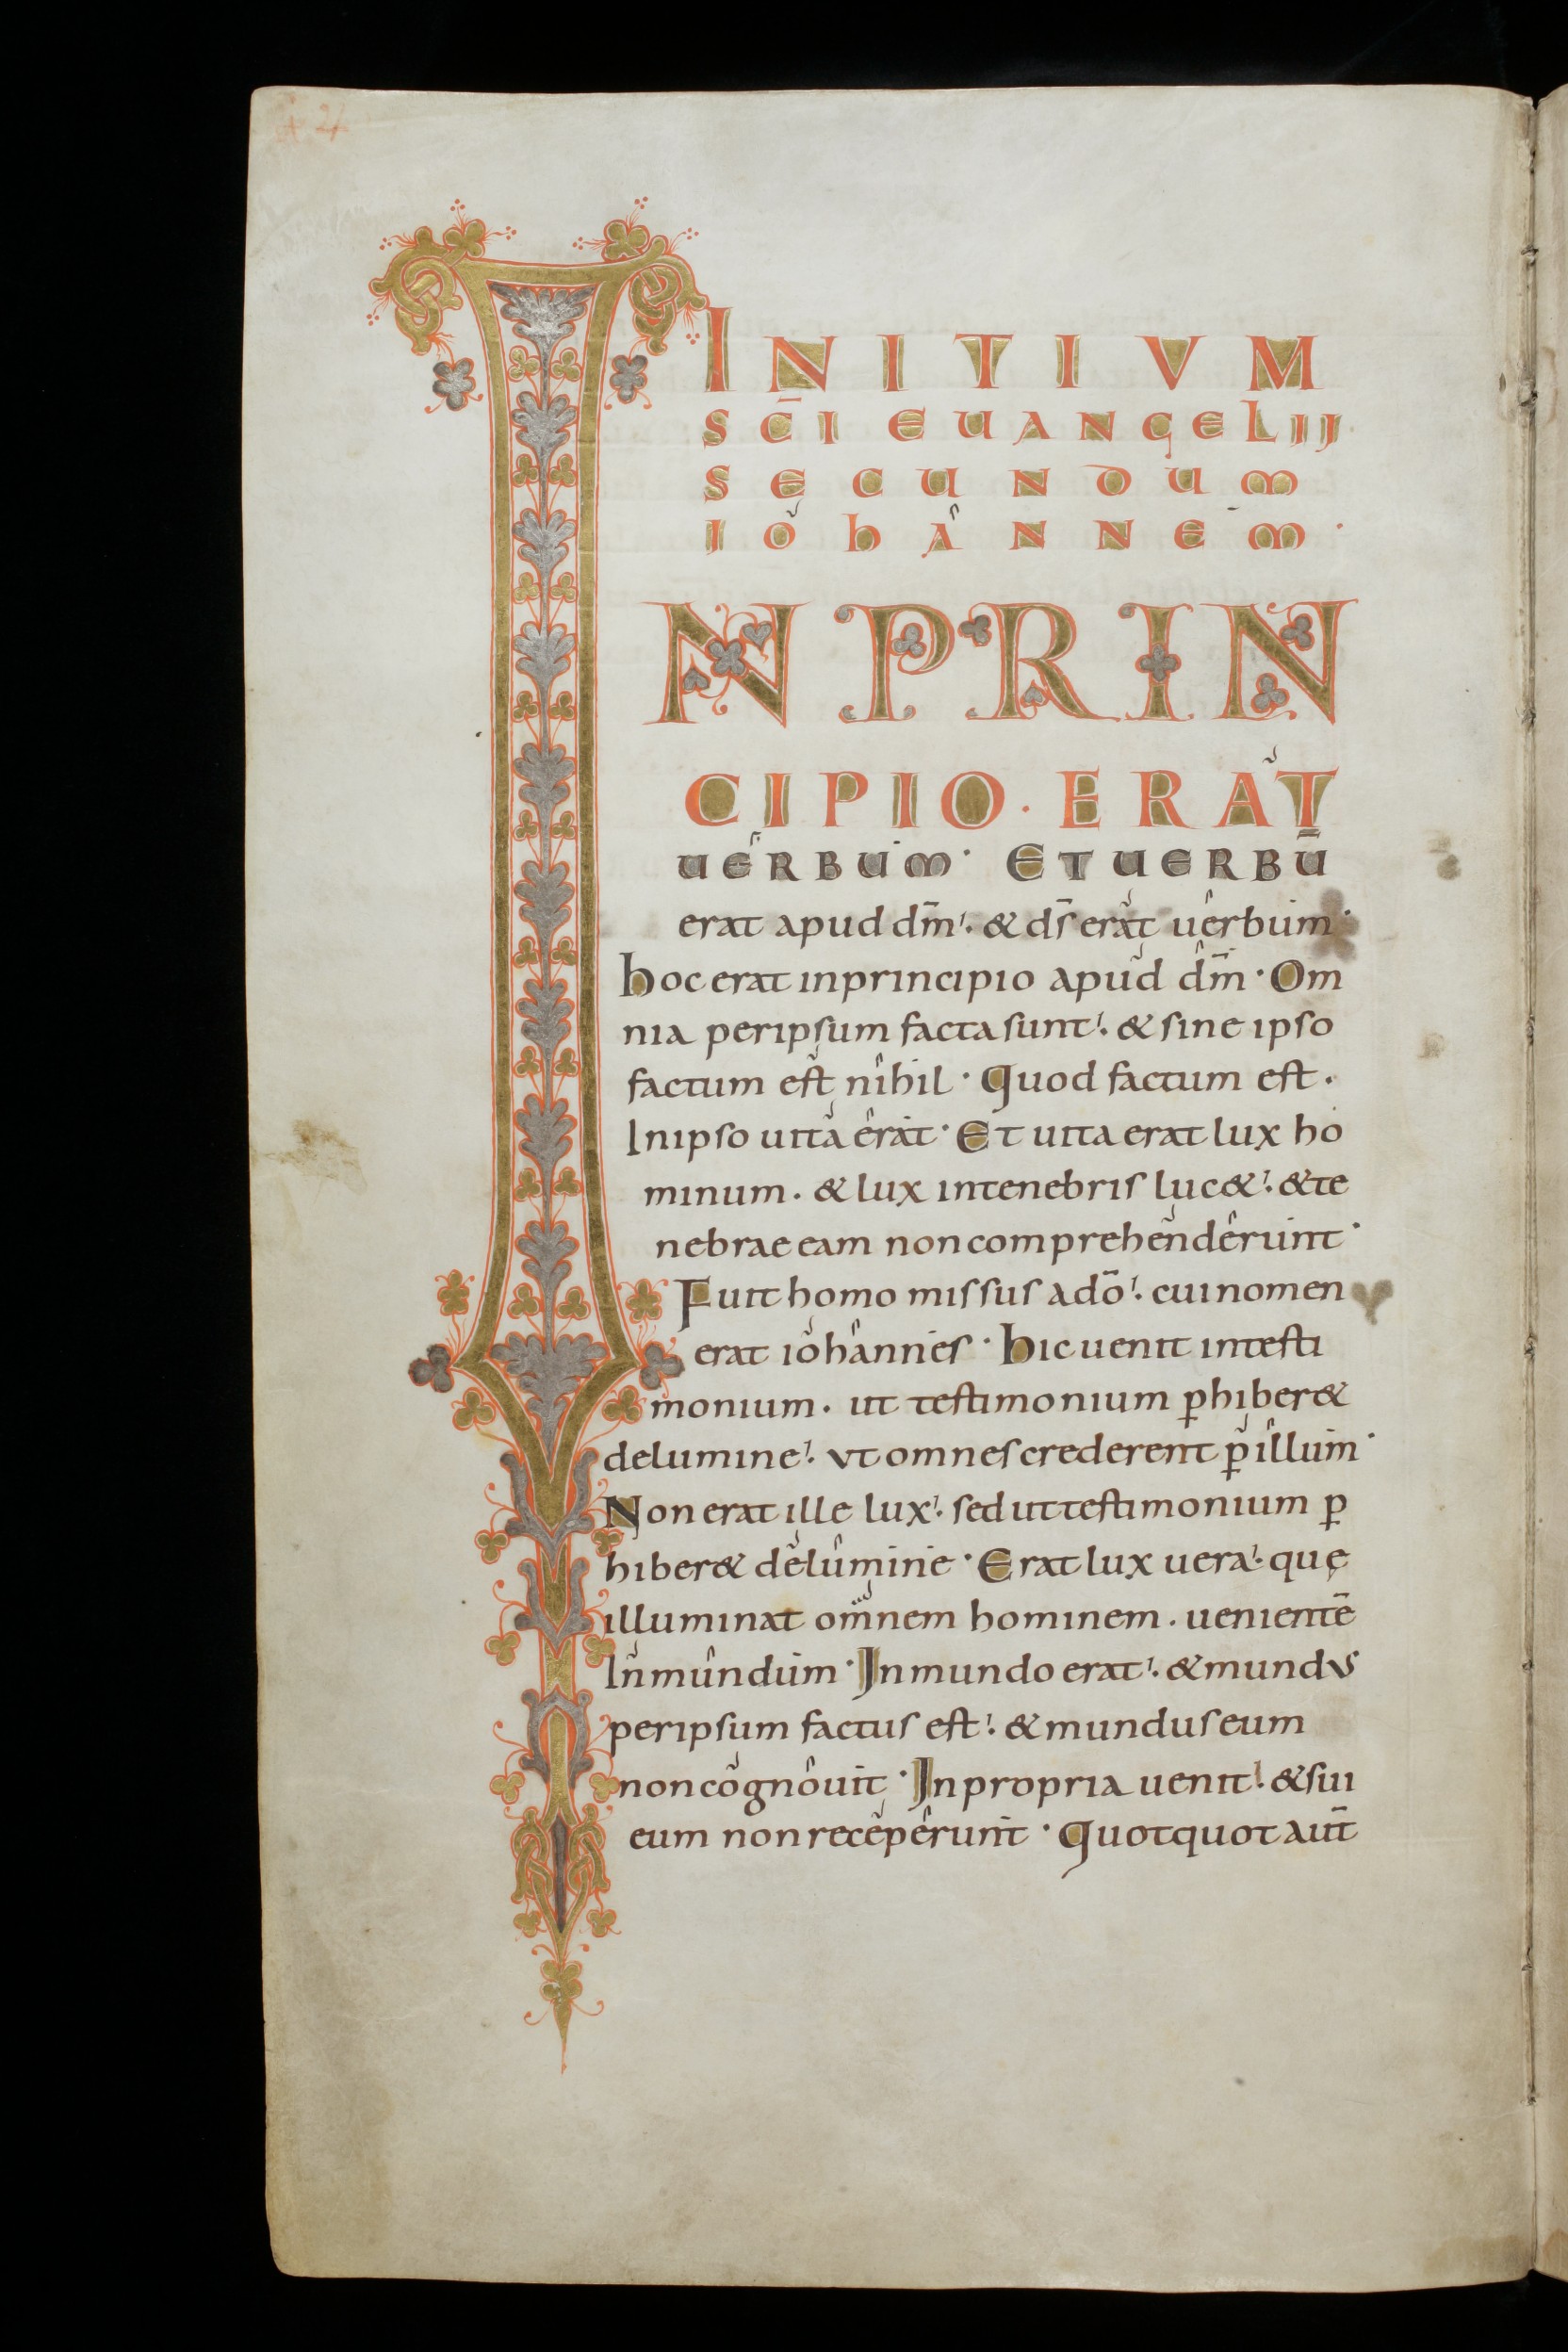 INITIVM
SC̄I EUANGELIJ
SECUNDUM
IOHANNEM·
IN PRIN
CIPIO· ERAT
UERBUM· ET UERBŪ
erat apud dm̄· & ds̄ erat uerbum·
hoc erat inprincipio apud dm̄· Om
nia peripsum facta sunt· & sine ipso
factum est nihil· Quod factum est·
Inipso uita erat· Et uita erat lux ho
minum· & lux intenebris luc&· &te
nebrae eam non comprehenderunt·
Fuit homo missus adō· cui nomen
erat iohannes· hic uenit intesti
monium· ut testimonium p̱hiber&
delumine· vt omnes crederent p̱ illum·
Non erat ille lux· sed ut testimonium p̱
hiber& delumine· Erat lux uera· quę
illuminat omnem hominem· uenientē
Inmundum· Inmundo erat· & mundus
peripsum factus est· & mundus eum
non cognouit· Inpropria uenit· & sui
eum non receperunt· Quotquot aut̄